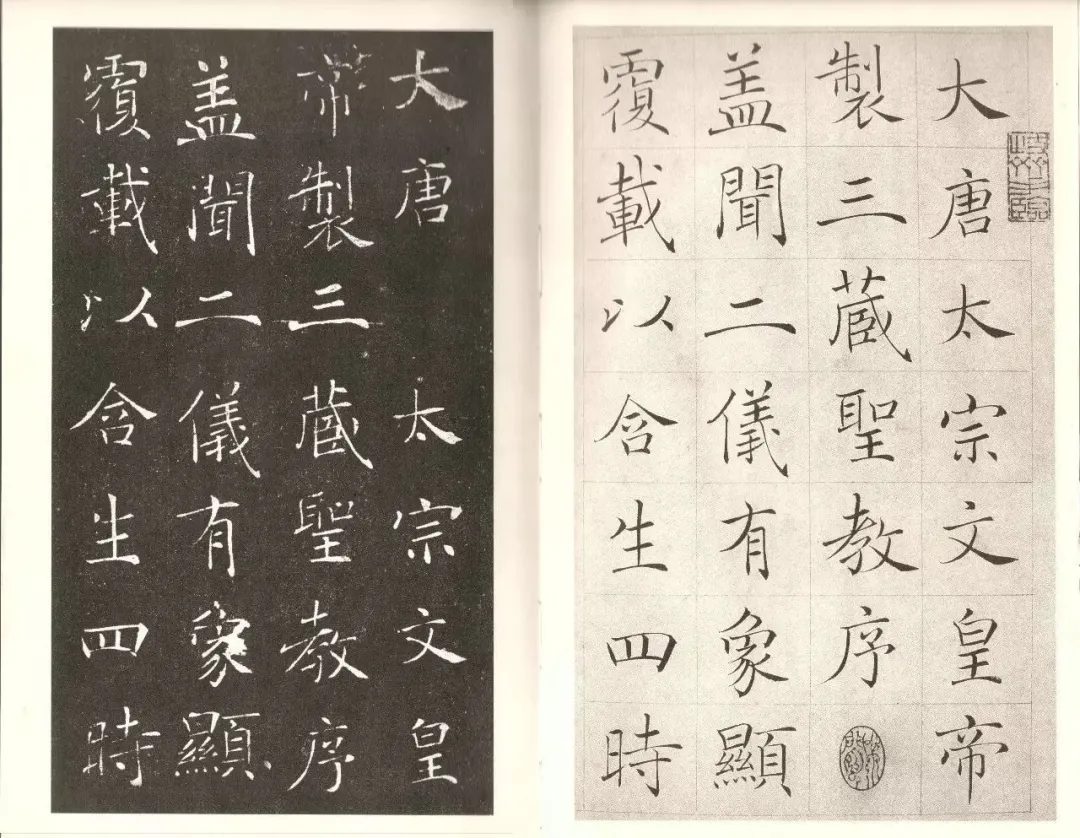 大唐太宗文皇帝
製三藏聖教序
盖聞二儀有象顯
覆載以含生四時
大唐太宗文皇
帝製三藏聖教序
盖聞二儀有象顯
覆載以含生四時